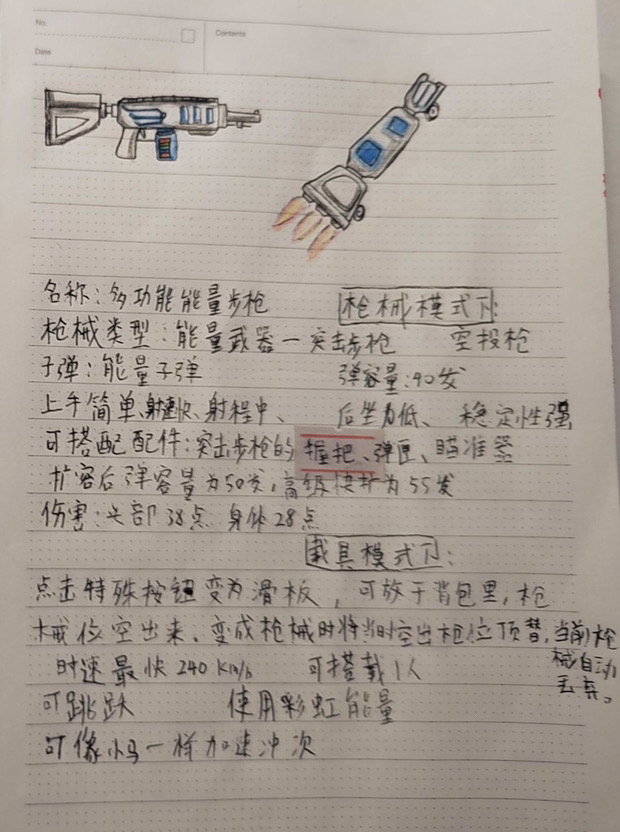 No.
Contents
Date
名称：多功能能量步枪
枪械模式下：
枪械类型：能量武器—突击步枪 空投枪
子弹：能量子弹 弹容量：40发
上手简单、射速快、射程中、后坐力低、稳定性强
可搭配配件：突击步枪的握把、弹匣、瞄准器
扩容后弹容量为50发，高级快扩为55发
伤害：头部38点 身体28点
载具模式下：
点击特殊按钮变为滑板，可放于背包里，枪
械位空出来、变成枪械时将当时空出枪位顶替，当前枪
械自动
丢弃。
时速最快240Km/h 可搭载1人
可跳跃 使用彩虹能量
可像小马一样加速冲次